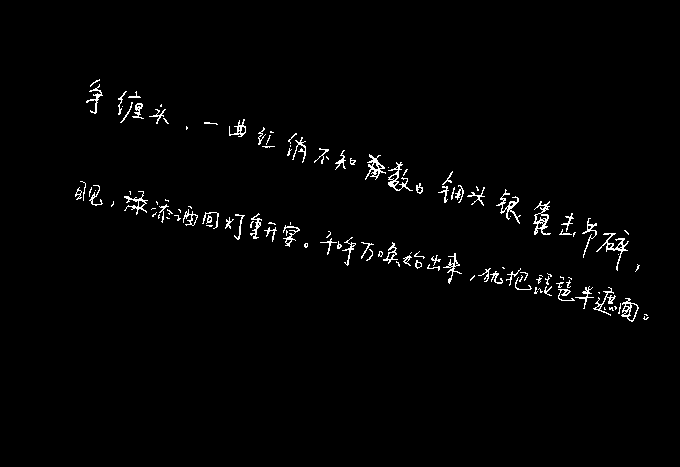 争缠头，一曲红绡不知数。钿头银篦击节碎，
见，添酒回灯重开宴。千呼万唤始出来，犹抱琵琶半遮面。